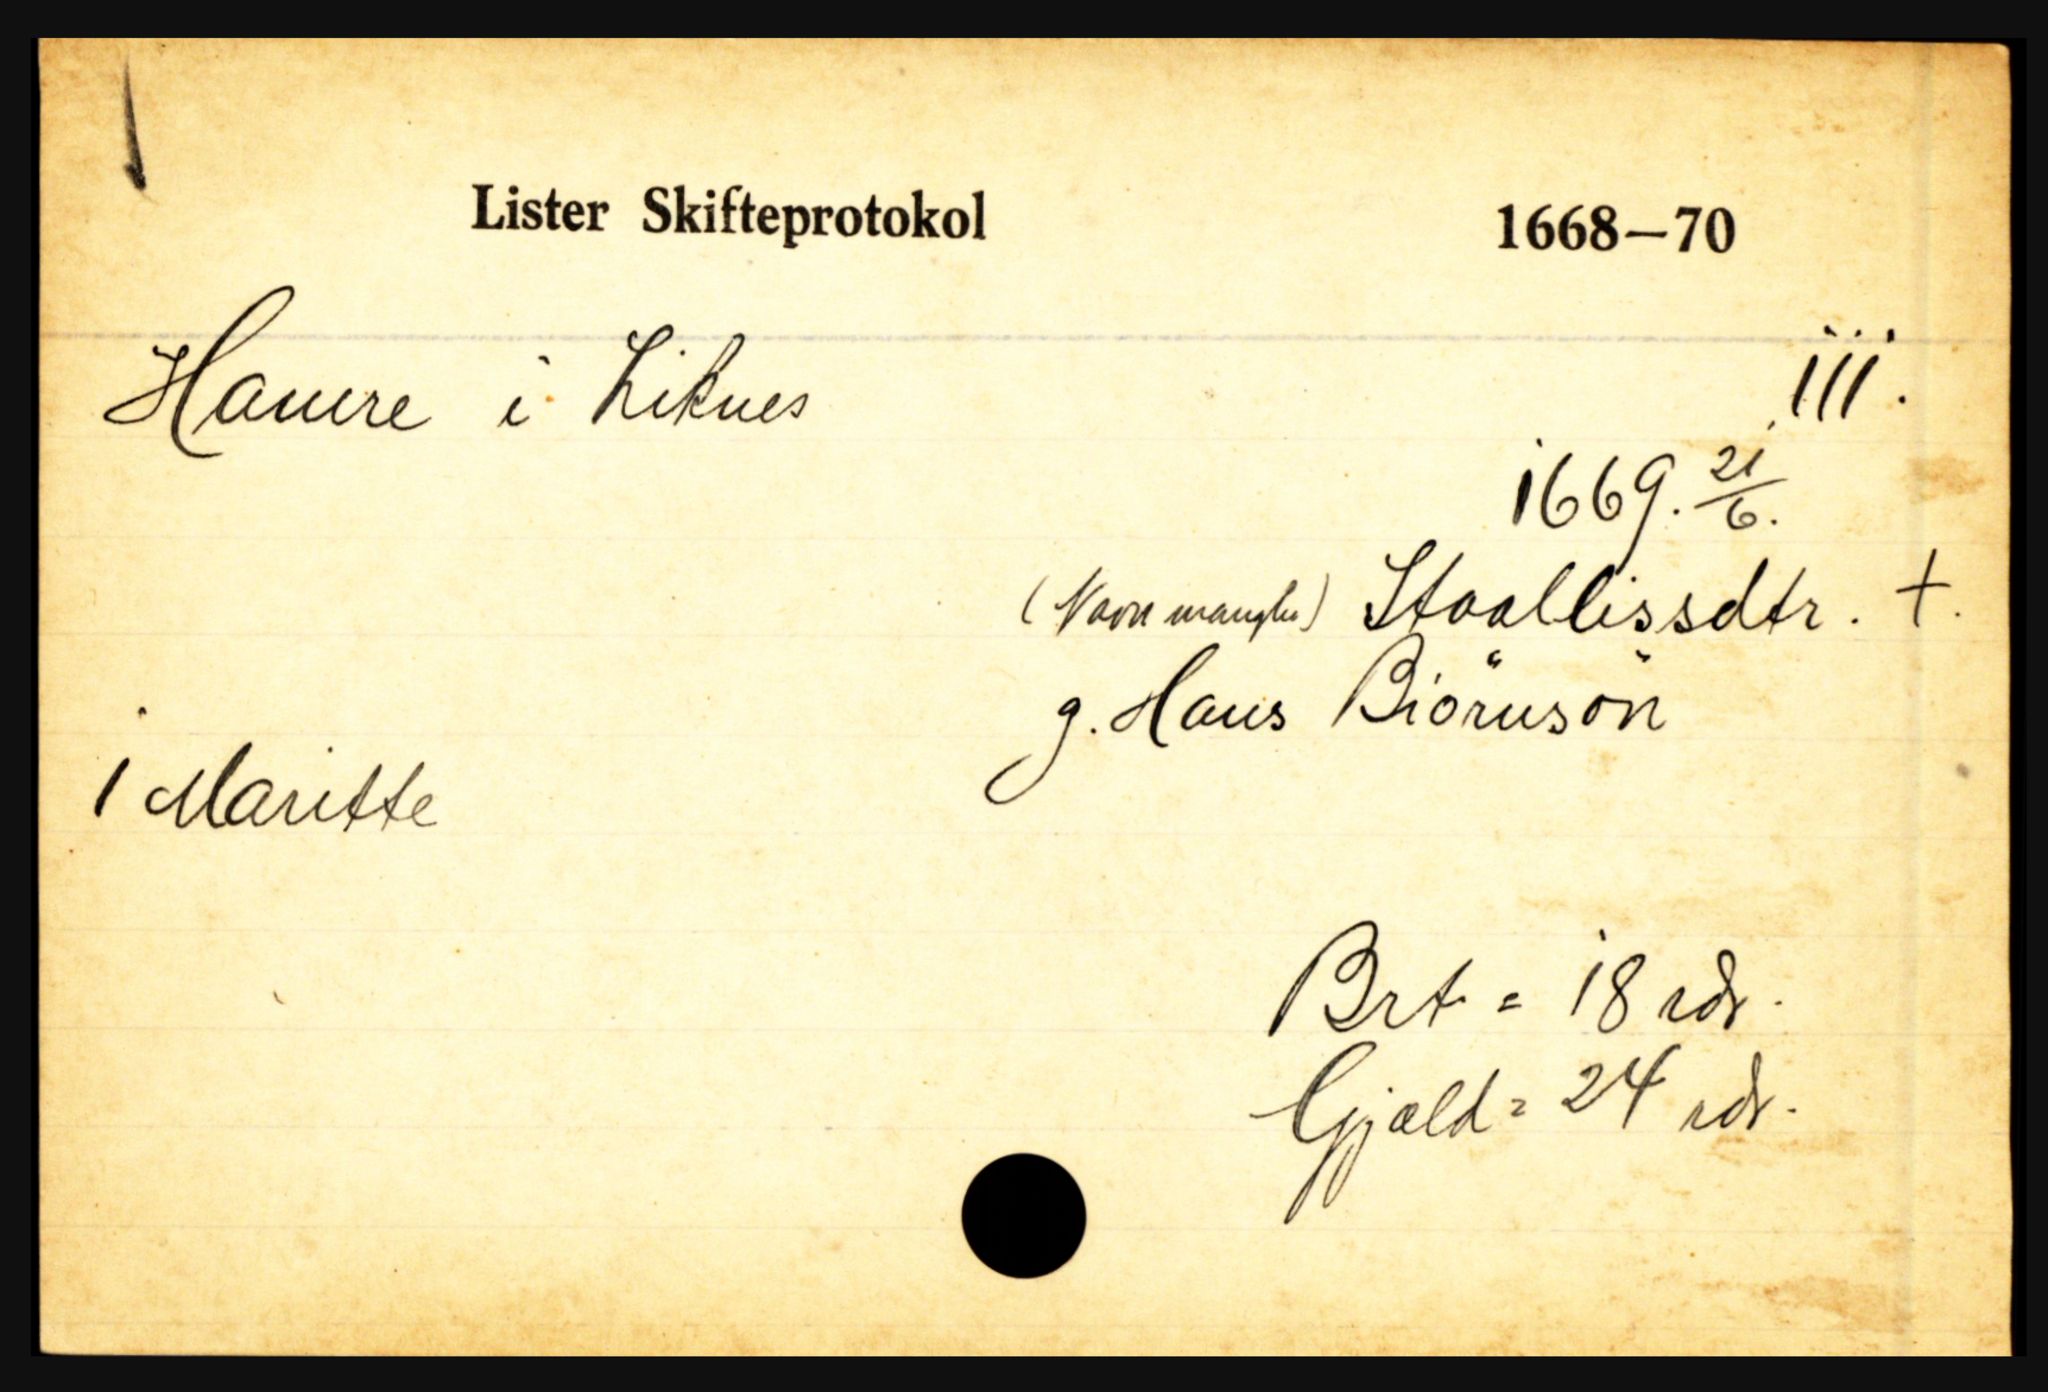 Lister Skifteprotokol 1668—70
Hamre i Liknes 111.
1669. 21/6.
(Navn mangler) Staallissdtr. +.
g. Hans Biörnsön
1 Maritte
Brt. = 18 rdr.
Gjæld = 24 rdr.